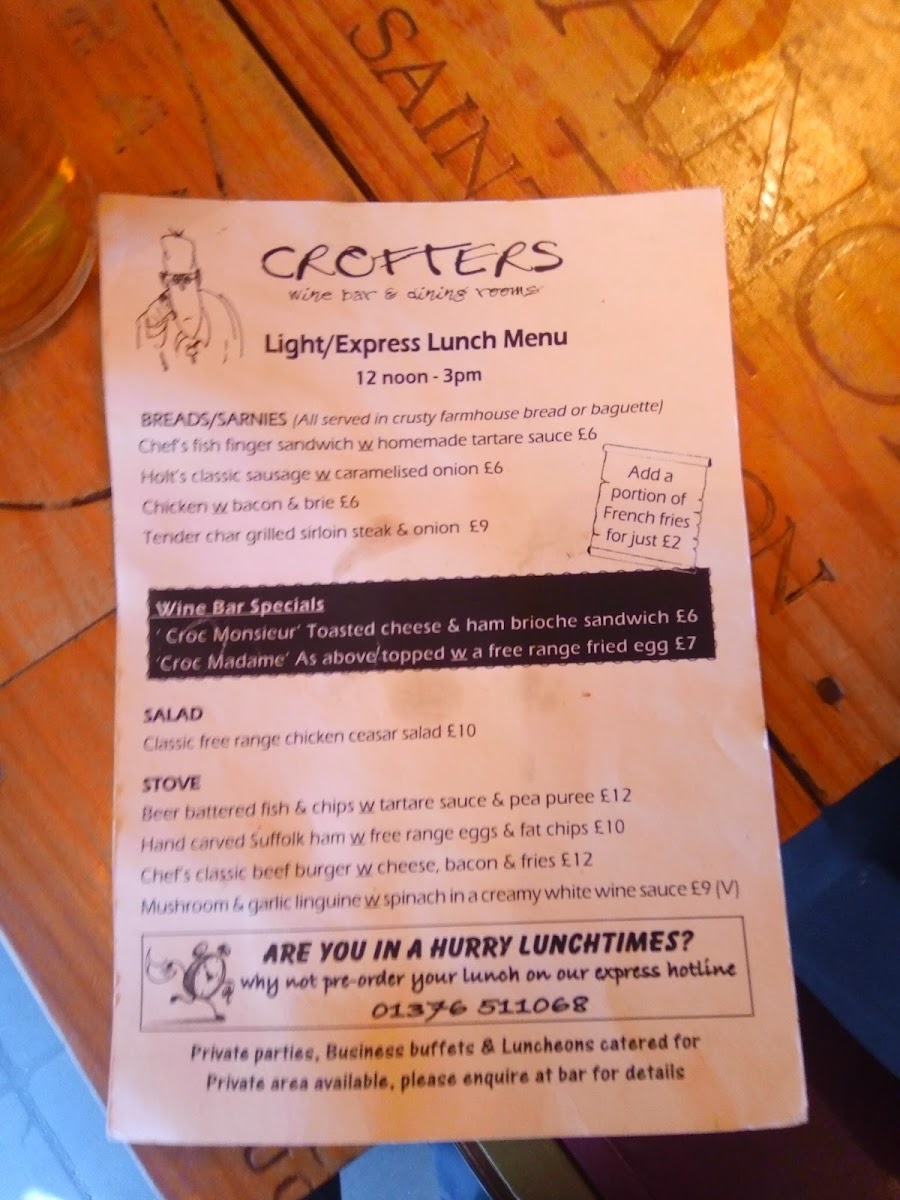 SAINT
CROFTERS
wine bar & dining rooms
Light/Express Lunch Menu
12 noon - 3pm
BREADS/SARNIES (All served in crusty farmhouse bread or baguette)
Chef's fish finger sandwich w homemade tartare sauce £6
Holt's classic sausage w caramelised onion £6
Chicken w bacon & brie £6
Tender char grilled sirloin steak & onion £9
Add a
portion of
French fries
for just £2
Wine Bar Specials
'Croc Monsieur' Toasted cheese & ham brioche sandwich £6
'Croc Madame' As above topped w a free range fried egg £7
SALAD
Classic free range chicken ceasar salad £10
STOVE
Beer battered fish & chips w tartare sauce & pea puree £12
Hand carved Suffolk ham w free range eggs & fat chips £10
Chef's classic beef burger w cheese, bacon & fries £12
Mushroom & garlic linguine w spinach in a creamy white wine sauce £9 (V)
ARE YOU IN A HURRY LUNCHTIMES?
why not pre-order your lunch on our express hotline
01376 511068
Private parties, Business buffets & Luncheons catered for
Private area available, please enquire at bar for details